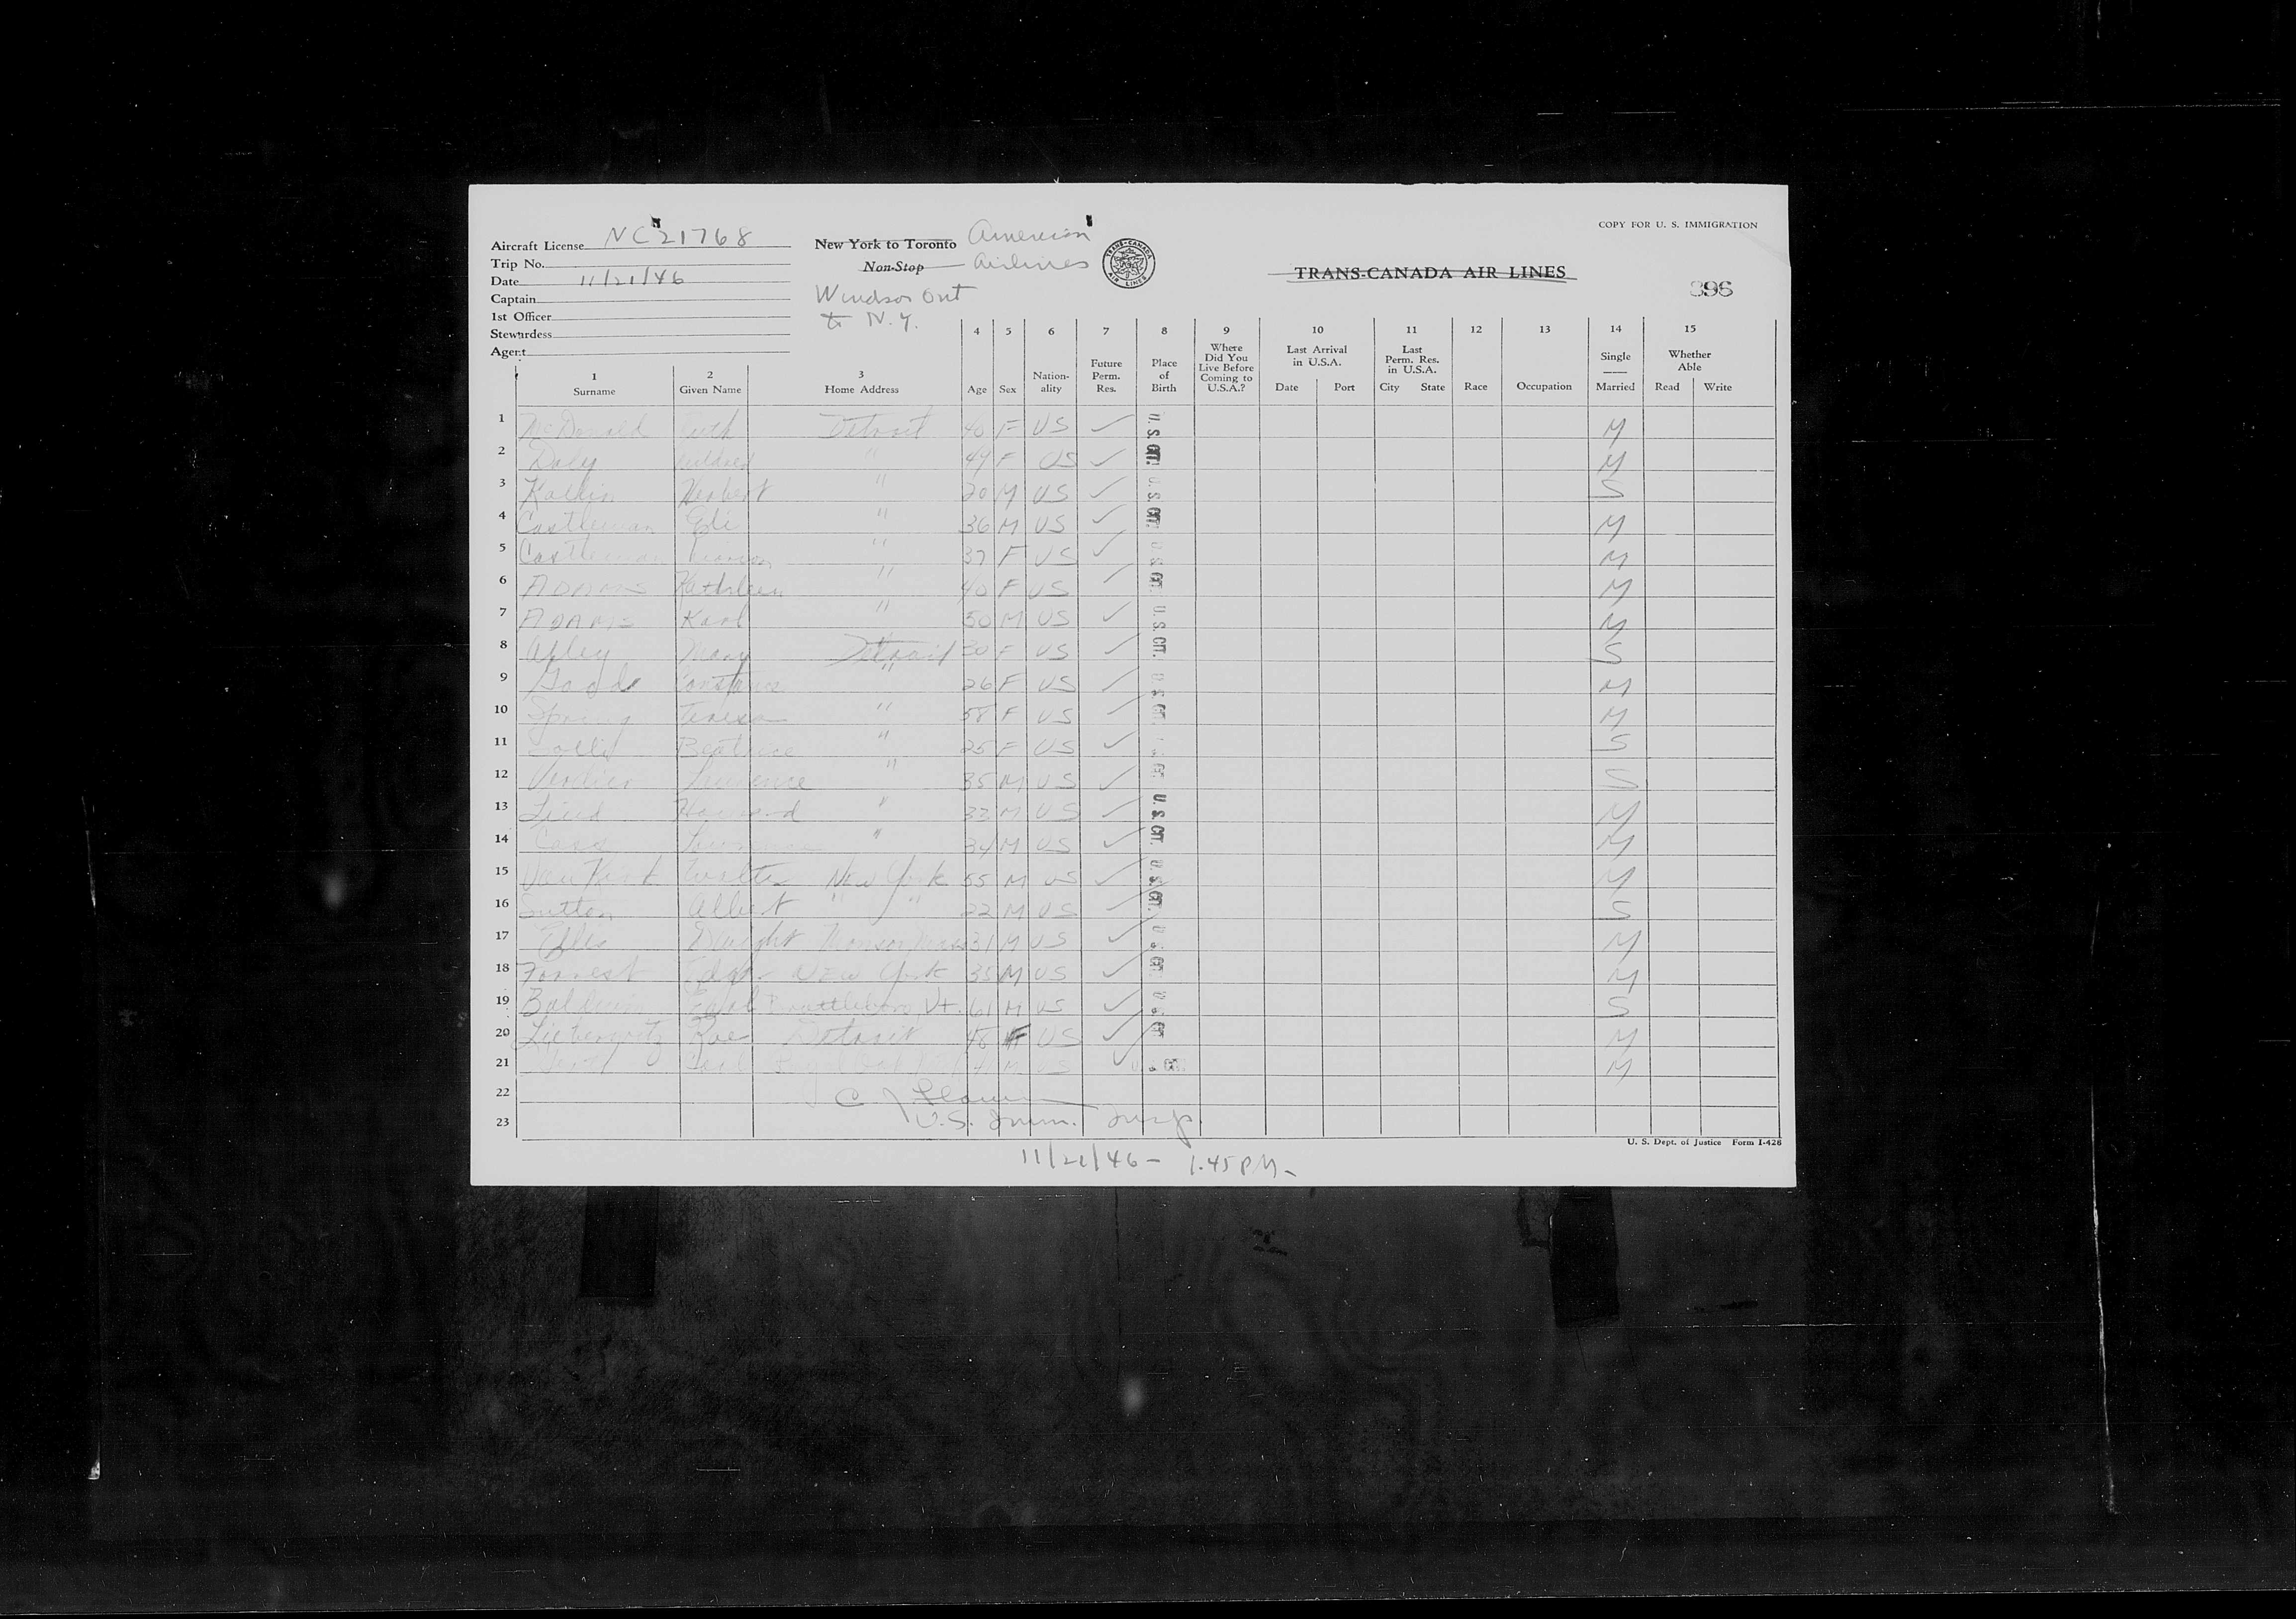 COPY FOR U. S. IMMIGRATION
Aircraft License NC21768
New York to Toronto American
Trip No.
Non-Stop Airlines
TRANS-CANADA AIR LINES
TRANS-CANADA AIR LINES
Date 11/21/46
396
Captain
Windsor Ont
1st Officer
to N.Y.
Stewardess
Agent
1 2 3 4 5 6 7 8 9 10 11 12 13 14 15
Surname Given Name Home Address Age Sex Nation-ality Future Perm. Res. Place of Birth Where Did You Live Before Coming to U.S.A.? Last Arrival in U.S.A. Date Port Last Perm. Res. in U.S.A. City State Race Occupation Single Married Whether Able Read Write
1 McDonald Ruth Detroit 40 F US ✓ U. S. CIT. M
2 Daly Mildred " 49 F US ✓ M
3 Herbert " 20 M US ✓ U. S. CIT. S
4 Castleman Eli " 36 M US ✓ M
5 Castleman " 37 F US ✓ U. S. CIT. M
6 ADAMS Kathleen " 40 F US ✓ M
7 ADAMS Karl " 50 M US ✓ U. S. CIT. M
8 Mary Detroit 30 F US ✓ S
9 Good Constance " 26 F US ✓ U. S. CIT. M
10 Spring Teresa " 58 F US ✓ M
11 Beatrice " 25 F US ✓ U. S. CIT. S
12 Lawrence " 35 M US ✓ S
13 Howard " 33 M US ✓ U. S. CIT. M
14 Lawrence " 34 M US ✓ M
15 Walter New York 55 M US ✓ U. S. CIT. M
16 Sutton Albert " " 22 M US ✓ S
17 Dwight Monson Mass 31 M US ✓ U. S. CIT. M
18 Forrest New York 35 M US ✓ M
19 Baldwin Earl Brattleboro, Vt. 61 M US ✓ U. S. CIT. S
20 Liebowitz Rae Detroit 48 F US ✓ M
21 M US ✓ U. S. CIT. M
22 C.
23 U.S. Imm. Insp.
U. S. Dept. of Justice Form I-426
11/21/46 - 1.45 PM -